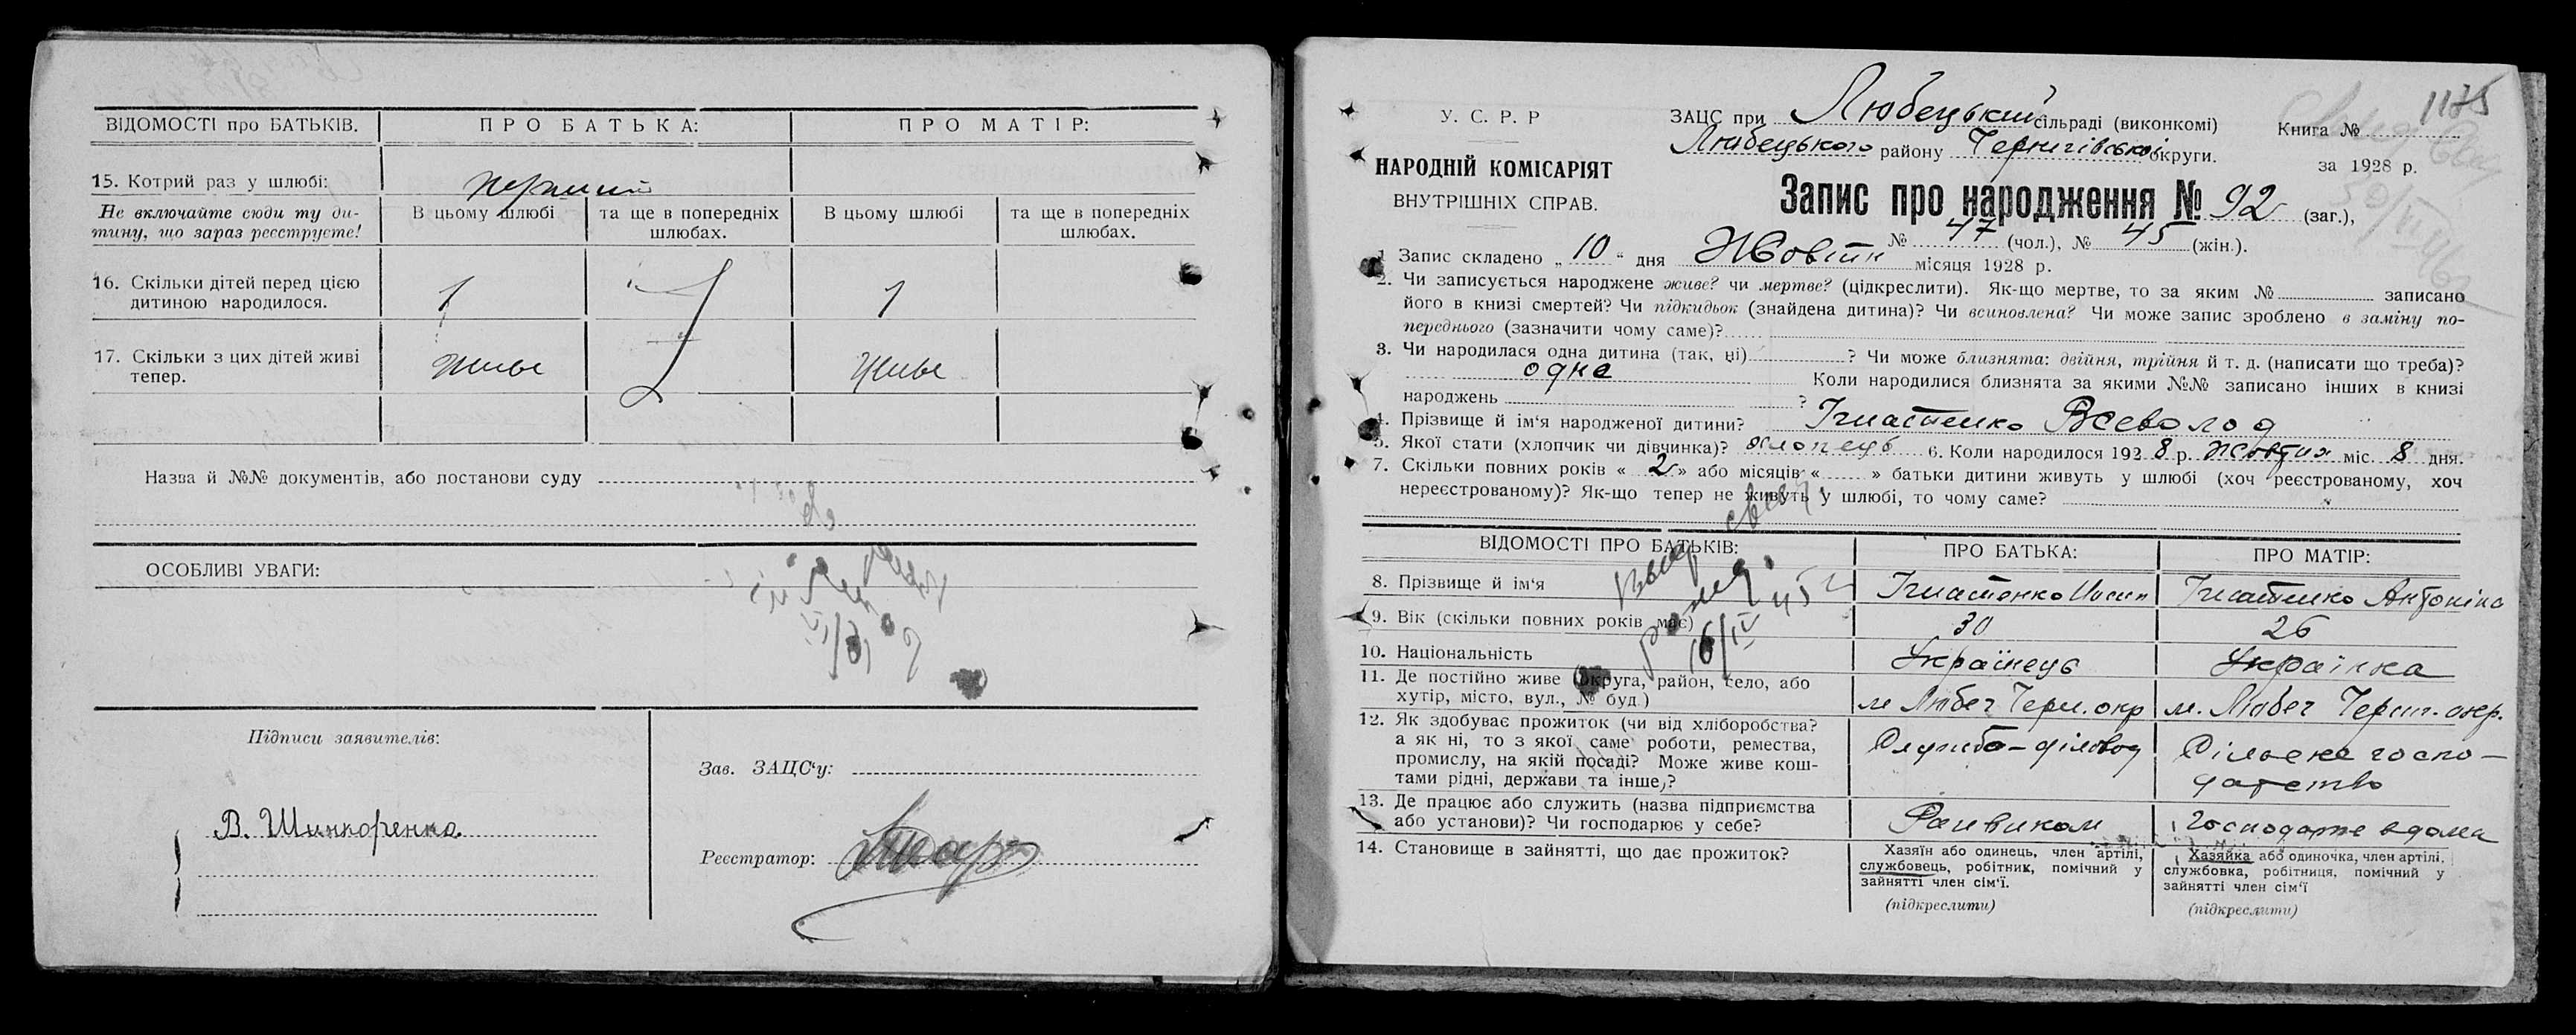 ВІДОМОСТІ про БАТЬКІВ. ПРО БАТЬКА: ПРО МАТІР:
15. Котрий раз у шлюбі: перший
Не включайте сюди ту ди-
тину, що зараз реєструєте!
В цьому шлюбі
та ще в попередніх
шлюбах.
В цьому шлюбі
та ще в попередніх
шлюбах.
16. Скільки дітей перед цією
дитиною народилося.
1 1
17. Скільки з цих дітей живі
тепер.
живе живе
Назва й №№ документів, або постанови суду
ОСОБЛИВІ УВАГИ:
Підписи заявителів:
В. Шинкоренко
Зав. ЗАЦС'у:
Реєстратор:
1175
У. С. Р. Р
НАРОДНІЙ КОМІСАРІЯТ
ВНУТРІШНІХ СПРАВ.
ЗАЦС при Любецький сільраді (виконкомі)
Любецького району Чернігівської округи.
Книга №
за 1928 р.
Запис про народження № 92 (заг.),
№ 47 (чол.), № 45 (жін.).
1 Запис складено „ 10 “ дня Жовтн місяця 1928 р.
2. Чи записується народжене живе? чи мертве? (цідкреслити). Як-що мертве, то за яким № записано
його в книзі смертей? Чи підкидьок (знайдена дитина)? Чи всиновлена? Чи може запис зроблено в заміну по-
переднього (зазначити чому саме)?
3. Чи народилася одна дитина (так, ні) ? Чи може близнята: двійня, трійня й т. д. (написати що треба)?
одна Коли народилися близнята за якими №№ записано інших в книзі
народжень ?
4. Прізвище й ім'я народженої дитини? Ігнатенко Всеволод
5. Якої стати (хлопчик чи дівчинка)? хлопець 6. Коли народилося 192 8 р. жовтня міс. 8 дня.
7. Скільки повних років « 2 » або місяців « » батьки дитини живуть у шлюбі (хоч реєстрованому, хоч
нереєстрованому)? Як-що тепер не живуть у шлюбі, то чому саме?
ВІДОМОСТІ ПРО БАТЬКІВ: ПРО БАТЬКА: ПРО МАТІР:
8. Прізвище й ім'я Ігнатенко Іосип Ігнатенко Антоніна
9. Вік (скільки повних років має) 30 26
16/IV 45
10. Національність Українець Українка
11. Де постійно живе (округа, район, село, або
хутір, місто, вул., № буд.)
м Любеч Черн. окр м. Любеч Черниг. окр.
12. Як здобуває прожиток (чи від хліборобства?
а як ні, то з якої саме роботи, ремества,
промислу, на якій посаді? Може живе кош-
тами рідні, держави та інше,?
Служба - діловод
Сільске госпо-
дарство
13. Де працює або служить (назва підприємства
або установи)? Чи господарює у себе?
Райвиком Господарте вдома
14. Становище в зайнятті, що дає прожиток?
Хазяїн або одинець, член артілі,
службовець, робітник, помічний у
зайнятті член сім'ї.
(підкреслити)
Хазяйка або одиночка, член артілі,
службовка, робітниця, помічний у
зайнятті член сім'ї
(підкреслити)